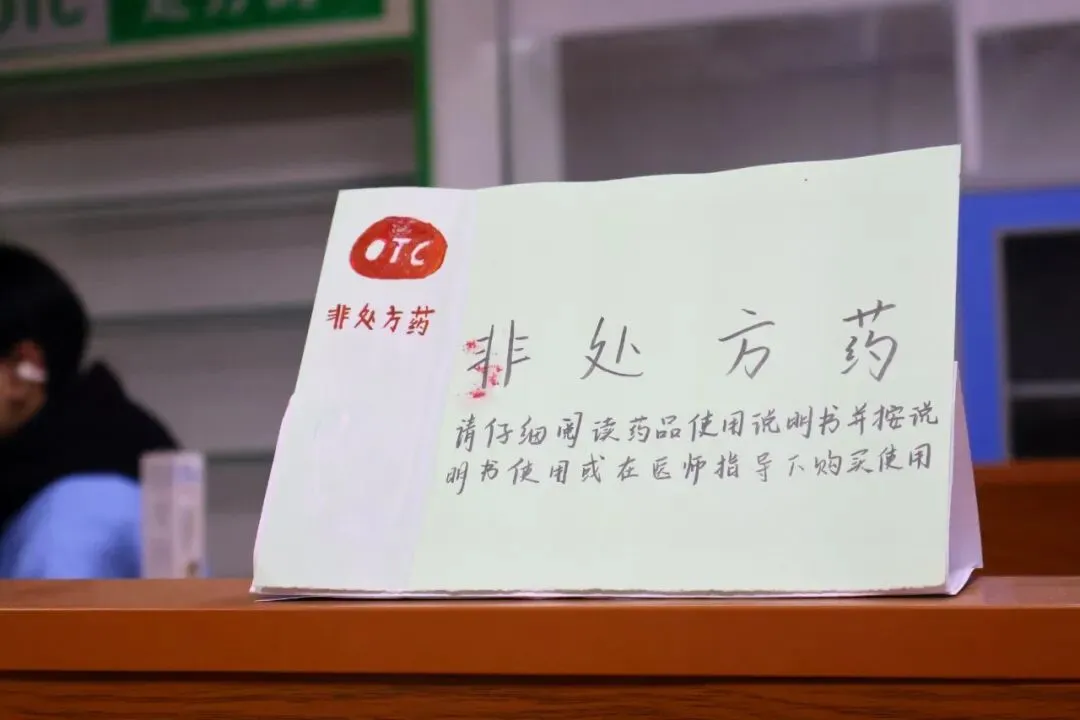 OTC
非处方药
非处方药
请仔细阅读药品使用说明书并按说
明书使用或在医师指导下购买使用